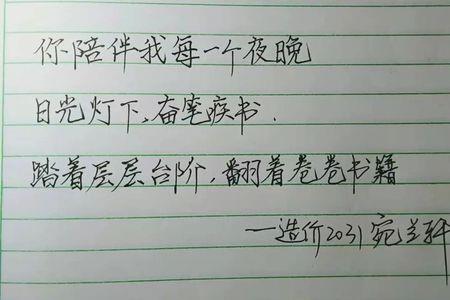 你陪伴我每一个夜晚
日光灯下,奋笔疾书.
踏着层层台阶,翻着卷卷书籍
—造价2031宛兰轩